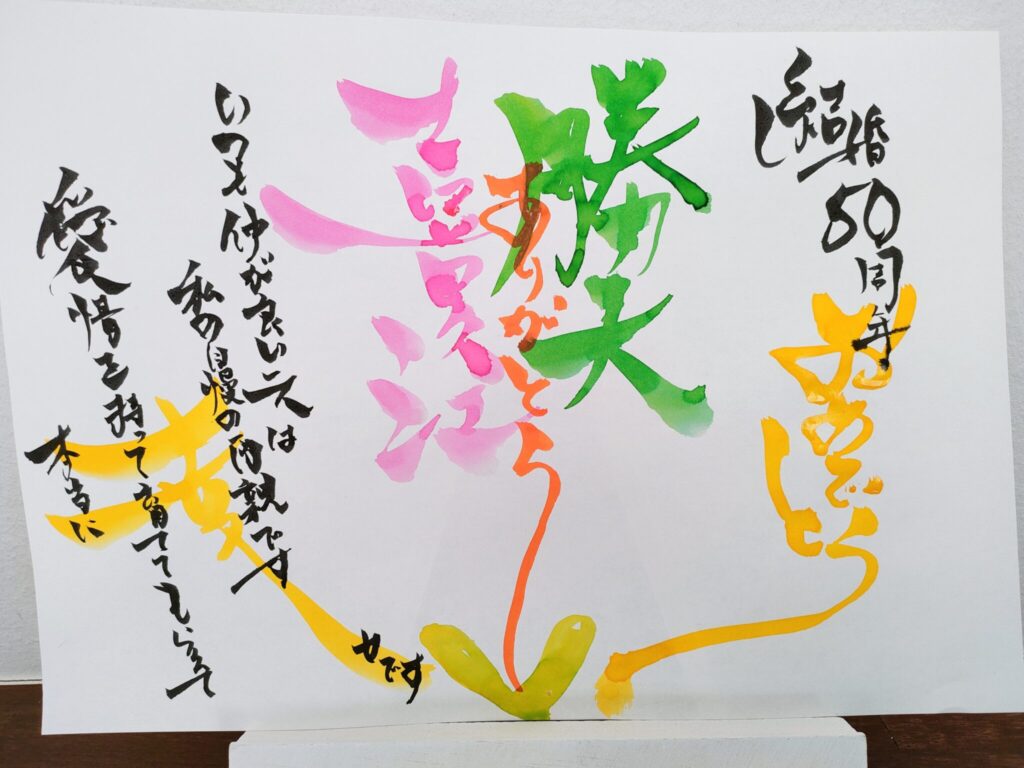 結婚50周年
おめでとう
勝夫
ありがとう
いつも仲が良い二人は
私の自慢の両親です
愛情を持って育ててもらって
本当に
幸
せです